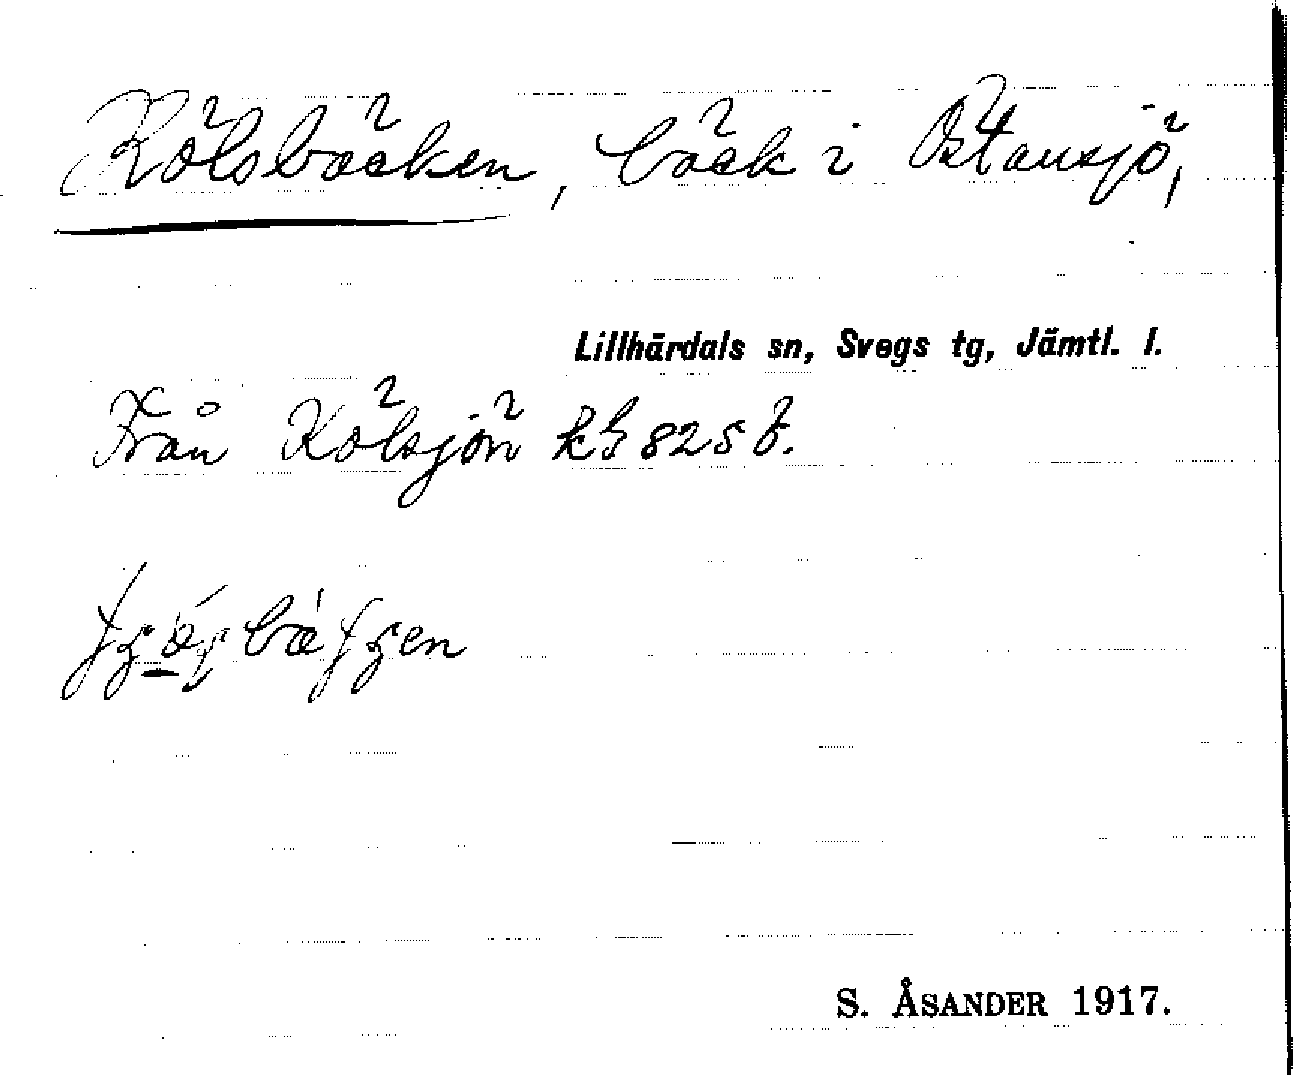 Kölsbäcken, bäck i Östansjö,
Lillhärdals sn, Svegs tg, Jämtl. l.
Från Kölsjön kh 825 b.
S. ÅSANDER 1917.